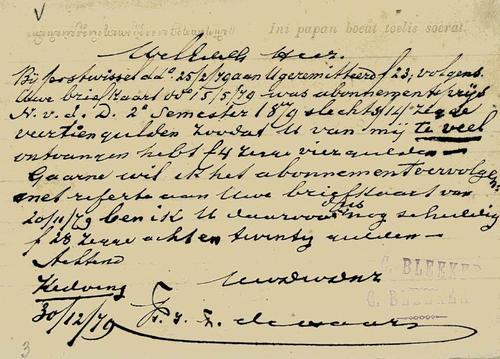 V
Ini papan boeat toelis soerat.
WelEdele Heer.
Bij postwissel dd. 25/2/79 aan U geremitteerd f 23, volgens
Uwe briefkaart van 15/5/79 was abonnementsprijs
N. v. d. D. 2e Semester 1879 slechts f 14 zegge
veertien gulden zoodat U van mij te veel
ontvangen hebt f 4 zegge vier gulden
Gaarne wil ik het abonnement vervolgen
met referte aan Uwe briefkaart van
20/11/79 ben ik U daarvoor dus nog schuldig
f 28 zegge acht en twenty gulden
Achtend
Uwdwdnr
Kedoeng
30/12/79
G. BLEEKER
G. BLEEKER
3